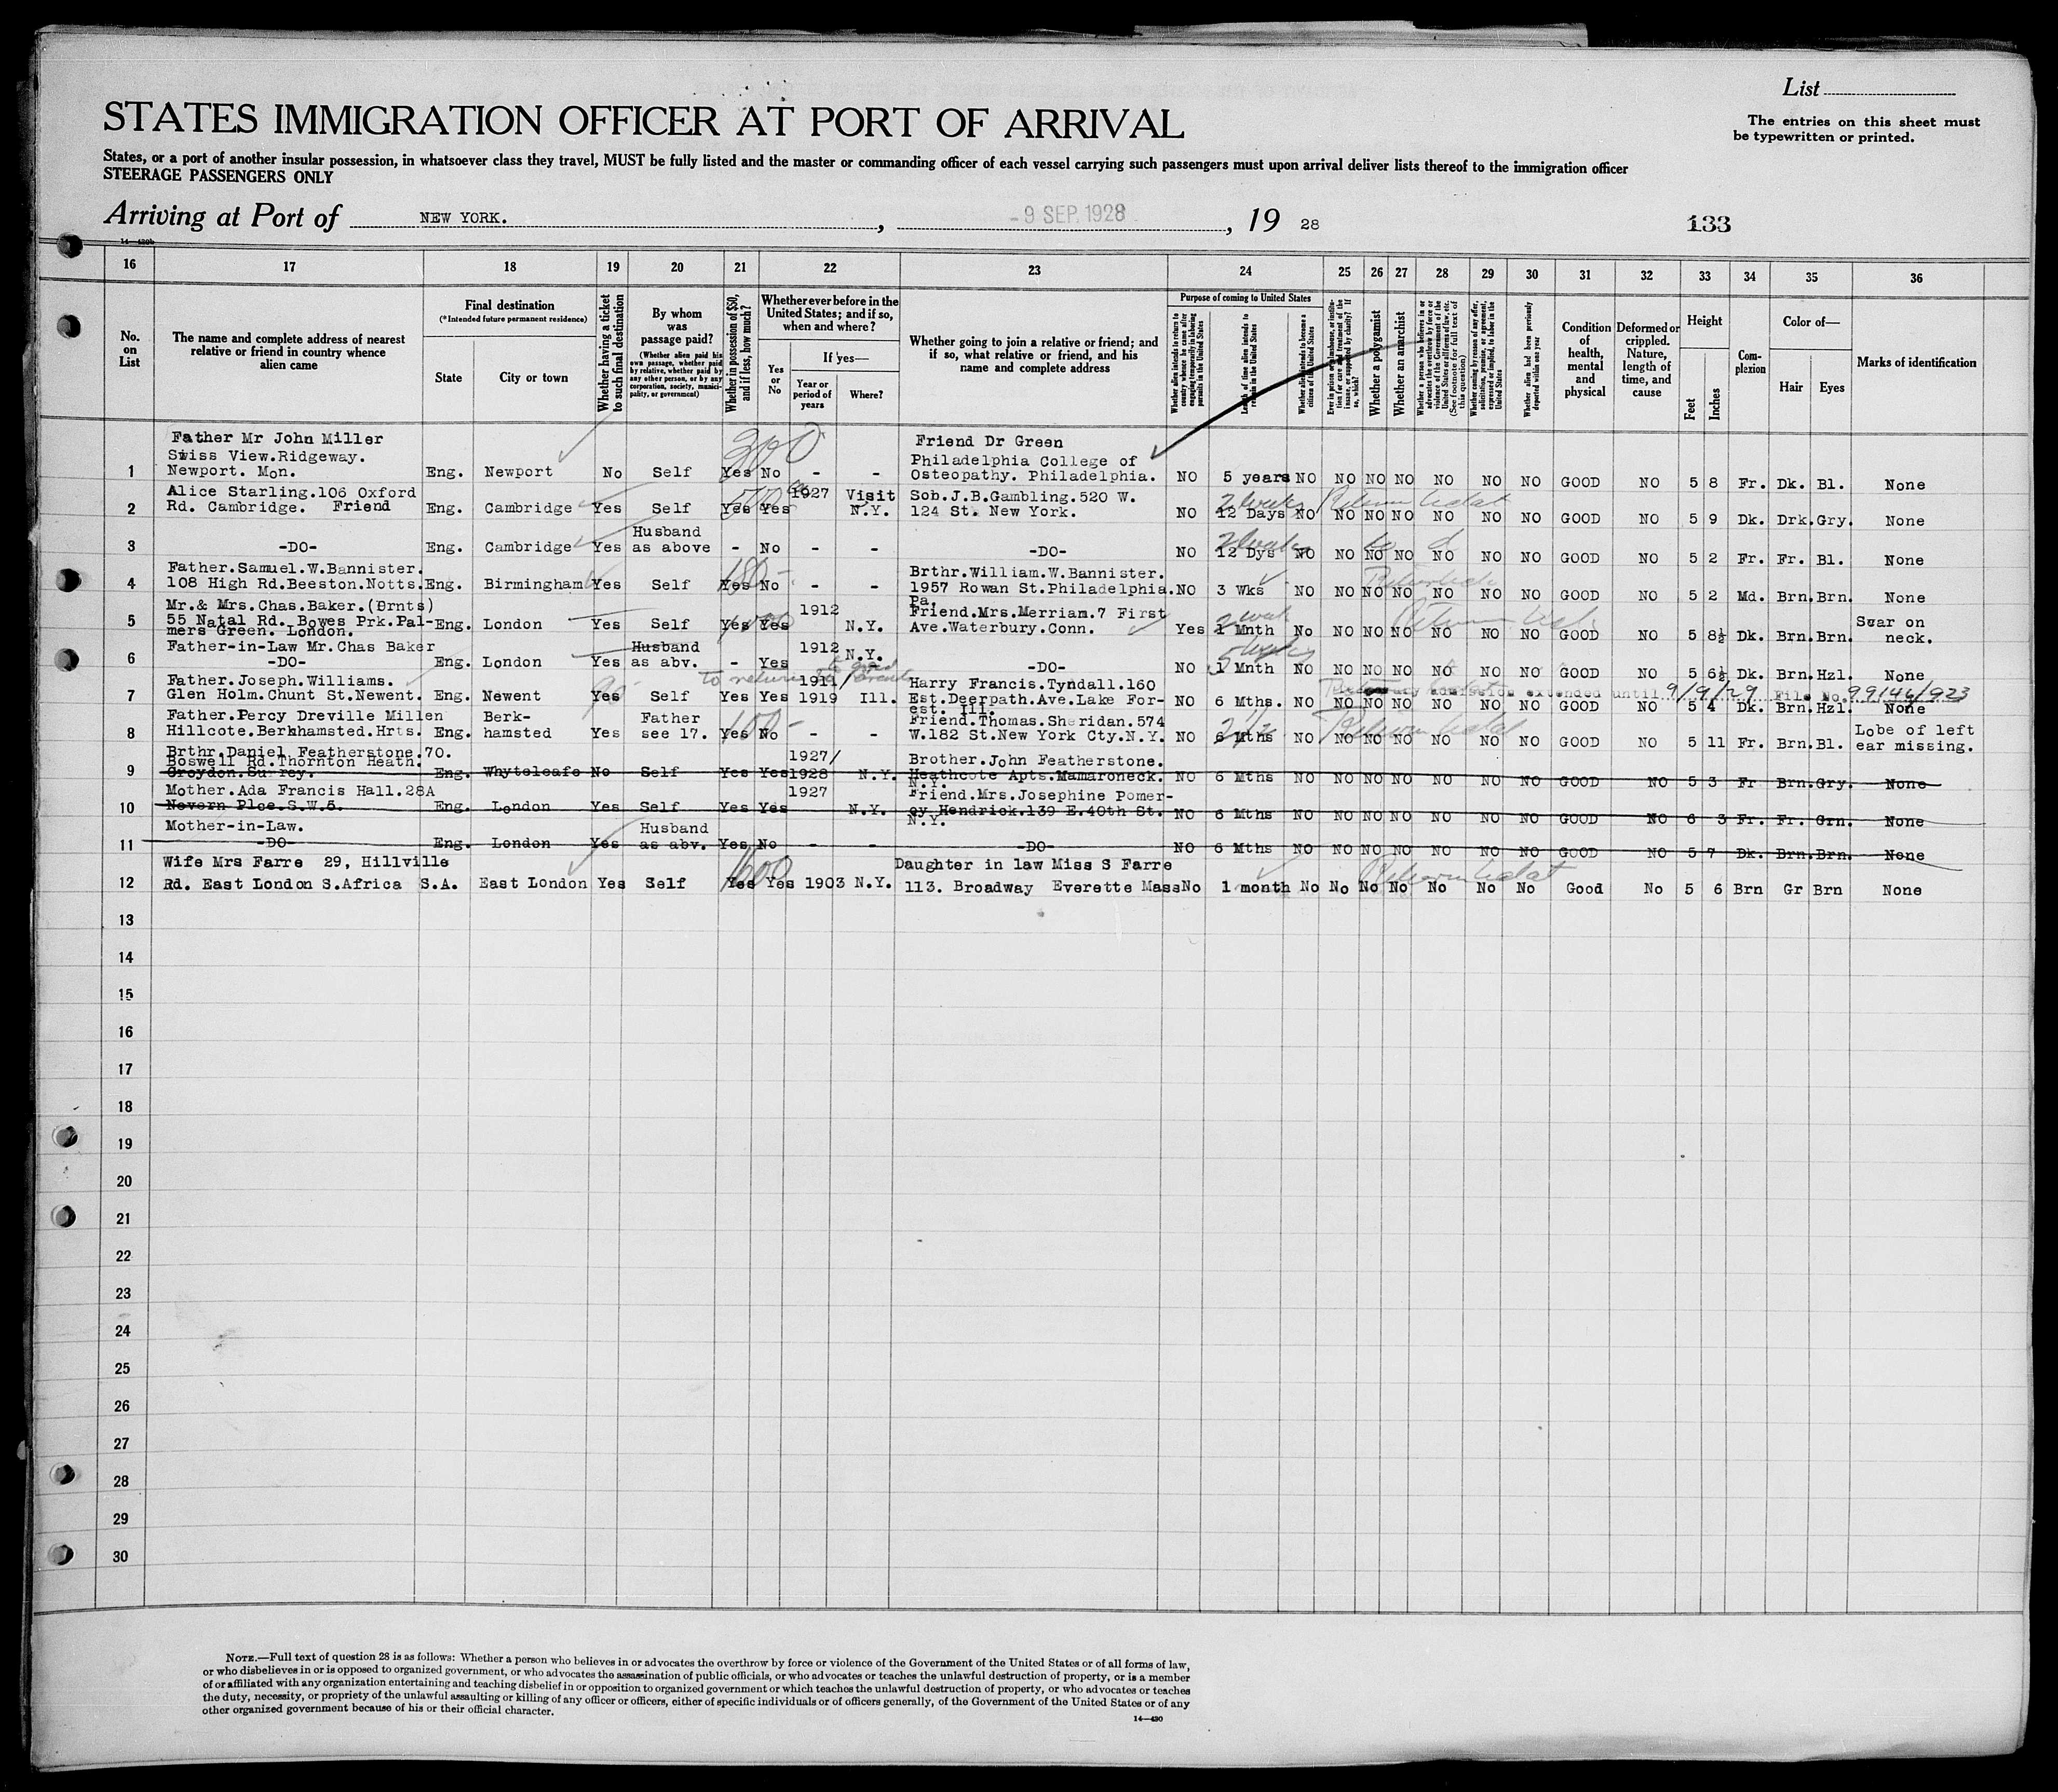 List
The entries on this sheet must
be typewritten or printed.
STATES IMMIGRATION OFFICER AT PORT OF ARRIVAL
States, or a port of another insular possession, in whatsoever class they travel, MUST be fully listed and the master or commanding officer of each vessel carrying such passengers must upon arrival deliver lists thereof to the immigration officer
STEERAGE PASSENGERS ONLY
Arriving at Port of NEW YORK. , - 9 SEP. 1928 , 19 28 133
16 17 18 19 20 21 22 23 24 25 26 27 28 29 30 31 32 33 34 35 36
No. on List
The name and complete address of nearest relative or friend in country whence alien came
Final destination
(*Intended future permanent residence)
State
City or town
Whether having a ticket to such final destination
By whom was passage paid?
(Whether alien paid his own passage, whether paid by relative, whether paid by any other person, or by any corporation, society, municipality, or government)
Whether in possession of $50, and if less, how much?
Whether ever before in the United States; and if so, when and where?
Yes or No
If yes—
Year or period of years
Where?
Whether going to join a relative or friend; and if so, what relative or friend, and his name and complete address
Purpose of coming to United States
Whether alien intends to return to country whence he came after engaging temporarily in laboring pursuits in the United States
Length of time alien intends to remain in the United States
Whether alien intends to become a citizen of the United States
Whether a polygamist
Whether an anarchist
Whether alien had been previously deported within one year
Condition of health, mental and physical
Deformed or crippled. Nature, length of time, and cause
Height
Feet
Inches
Complexion
Color of—
Hair
Eyes
Marks of identification
Father Mr John Miller Friend Dr Green
Swiss View.Ridgeway. 300 Philadelphia College of
1 Newport. Mon. Eng. Newport No Self Yes No - - Osteopathy. Philadelphia. NO 5 years NO NO NO NO NO NO NO GOOD NO 5 8 Fr. Dk. Bl. None
Alice Starling.106 Oxford 1927 Visit Sob.J.B.Gambling.520 W. 2 weeks
2 Rd. Cambridge. Friend Eng. Cambridge Yes Self Yes Yes N.Y. 124 St. New York. NO 12 Days NO NO NO NO NO NO NO GOOD NO 5 9 Dk. Drk. Gry. None
Husband
3 -DO- Eng. Cambridge Yes as above - No - - -DO- NO 12 Dys NO NO NO NO NO NO NO GOOD NO 5 2 Fr. Fr. Bl. None
Father.Samuel.W.Bannister. 180 Brthr.William.W.Bannister.
4 108 High Rd.Beeston.Notts. Eng. Birmingham Yes Self Yes No - - 1957 Rowan St.Philadelphia. NO 3 Wks NO NO NO NO NO NO NO GOOD NO 5 2 Md. Brn. Brn. None
Pa.
Mr.& Mrs.Chas.Baker.(Brnts) 1912 Friend.Mrs.Merriam.7 First
5 55 Natal Rd. Bowes Prk.Pal- Eng. London Yes Self Yes Yes N.Y. Ave.Waterbury.Conn. Yes 1 Mnth No NO NO NO NO NO NO GOOD NO 5 8½ Dk. Brn. Brn. Scar on
mers Green. London. neck.
Father-in-Law Mr.Chas Baker Husband 1912
6 -DO- Eng. London Yes as abv. - Yes N.Y. -DO- NO 1 Mnth NO NO NO NO NO NO NO GOOD NO 5 6½ Dk. Brn. Hzl. None
Father.Joseph.Williams. 1911/ Harry Francis.Tyndall.160 admission extended until 9/9/29 File No. 99146/923
7 Glen Holm.Chunt St.Newent. Eng. Newent Yes Self Yes Yes 1919 Ill. Est.Deerpath.Ave.Lake For- NO 6 Mths. NO NO NO NO NO NO NO GOOD NO 5 4 Dk. Brn. Hzl. None
est. Ill.
Father.Percy Dreville Millen Berk- Father Friend.Thomas.Sheridan.574 Lobe of left
8 Hillcote.Berkhamsted.Hrts. Eng. hamsted Yes see 17. Yes No - - W.182 St.New York Cty.N.Y. NO 6 Mths NO NO NO NO NO NO NO GOOD NO 5 11 Fr. Brn. Bl. ear missing.
Brthr.Daniel.Featherstone.70. 1927/ Brother.John Featherstone.
Boswell Rd.Thornton Heath.
9 Croydon.Surrey. Eng. Whyteleafe No Self Yes Yes 1928 N.Y. Heathcote Apts.Mamaroneck. NO 6 Mths NO NO NO NO NO NO NO GOOD NO 5 3 Fr Brn. Gry. None
N.Y.
Mother.Ada Francis Hall.28A 1927 Friend.Mrs.Josephine Pomer-
10 Nevern Plce.S.W.5. Eng. London Yes Self Yes Yes N.Y. oy Hendrick.139 E.40th St. NO 6 Mths NO NO NO NO NO NO NO GOOD NO 6 3 Fr. Fr. Grn. None
N.Y.
Mother-in-Law. Husband
11 -DO- Eng. London Yes as abv. Yes No - - -DO- NO 6 Mths NO NO NO NO NO NO NO GOOD NO 5 7 Dk. Brn. Brn. None
Wife Mrs Farre 29, Hillville 1600 Daughter in law Miss S Farre
12 Rd. East London S.Africa S.A. East London Yes Self Yes Yes 1903 N.Y. 113. Broadway Everette Mass No 1 month No No No No No No No Good No 5 6 Brn Gr Brn None
13
14
15
16
17
18
19
20
21
22
23
24
25
26
27
28
29
30
NOTE.—Full text of question 28 is as follows: Whether a person who believes in or advocates the overthrow by force or violence of the Government of the United States or of all forms of law,
or who disbelieves in or is opposed to organized government, or who advocates the assassination of public officials, or who advocates or teaches the unlawful destruction of property, or is a member
of or affiliated with any organization entertaining and teaching disbelief in or opposition to organized government or which teaches the unlawful destruction of property, or who advocates or teaches
the duty, necessity, or propriety of the unlawful assaulting or killing of any officer or officers, either of specific individuals or of officers generally, of the Government of the United States or of any
other organized government because of his or their official character.
14—430